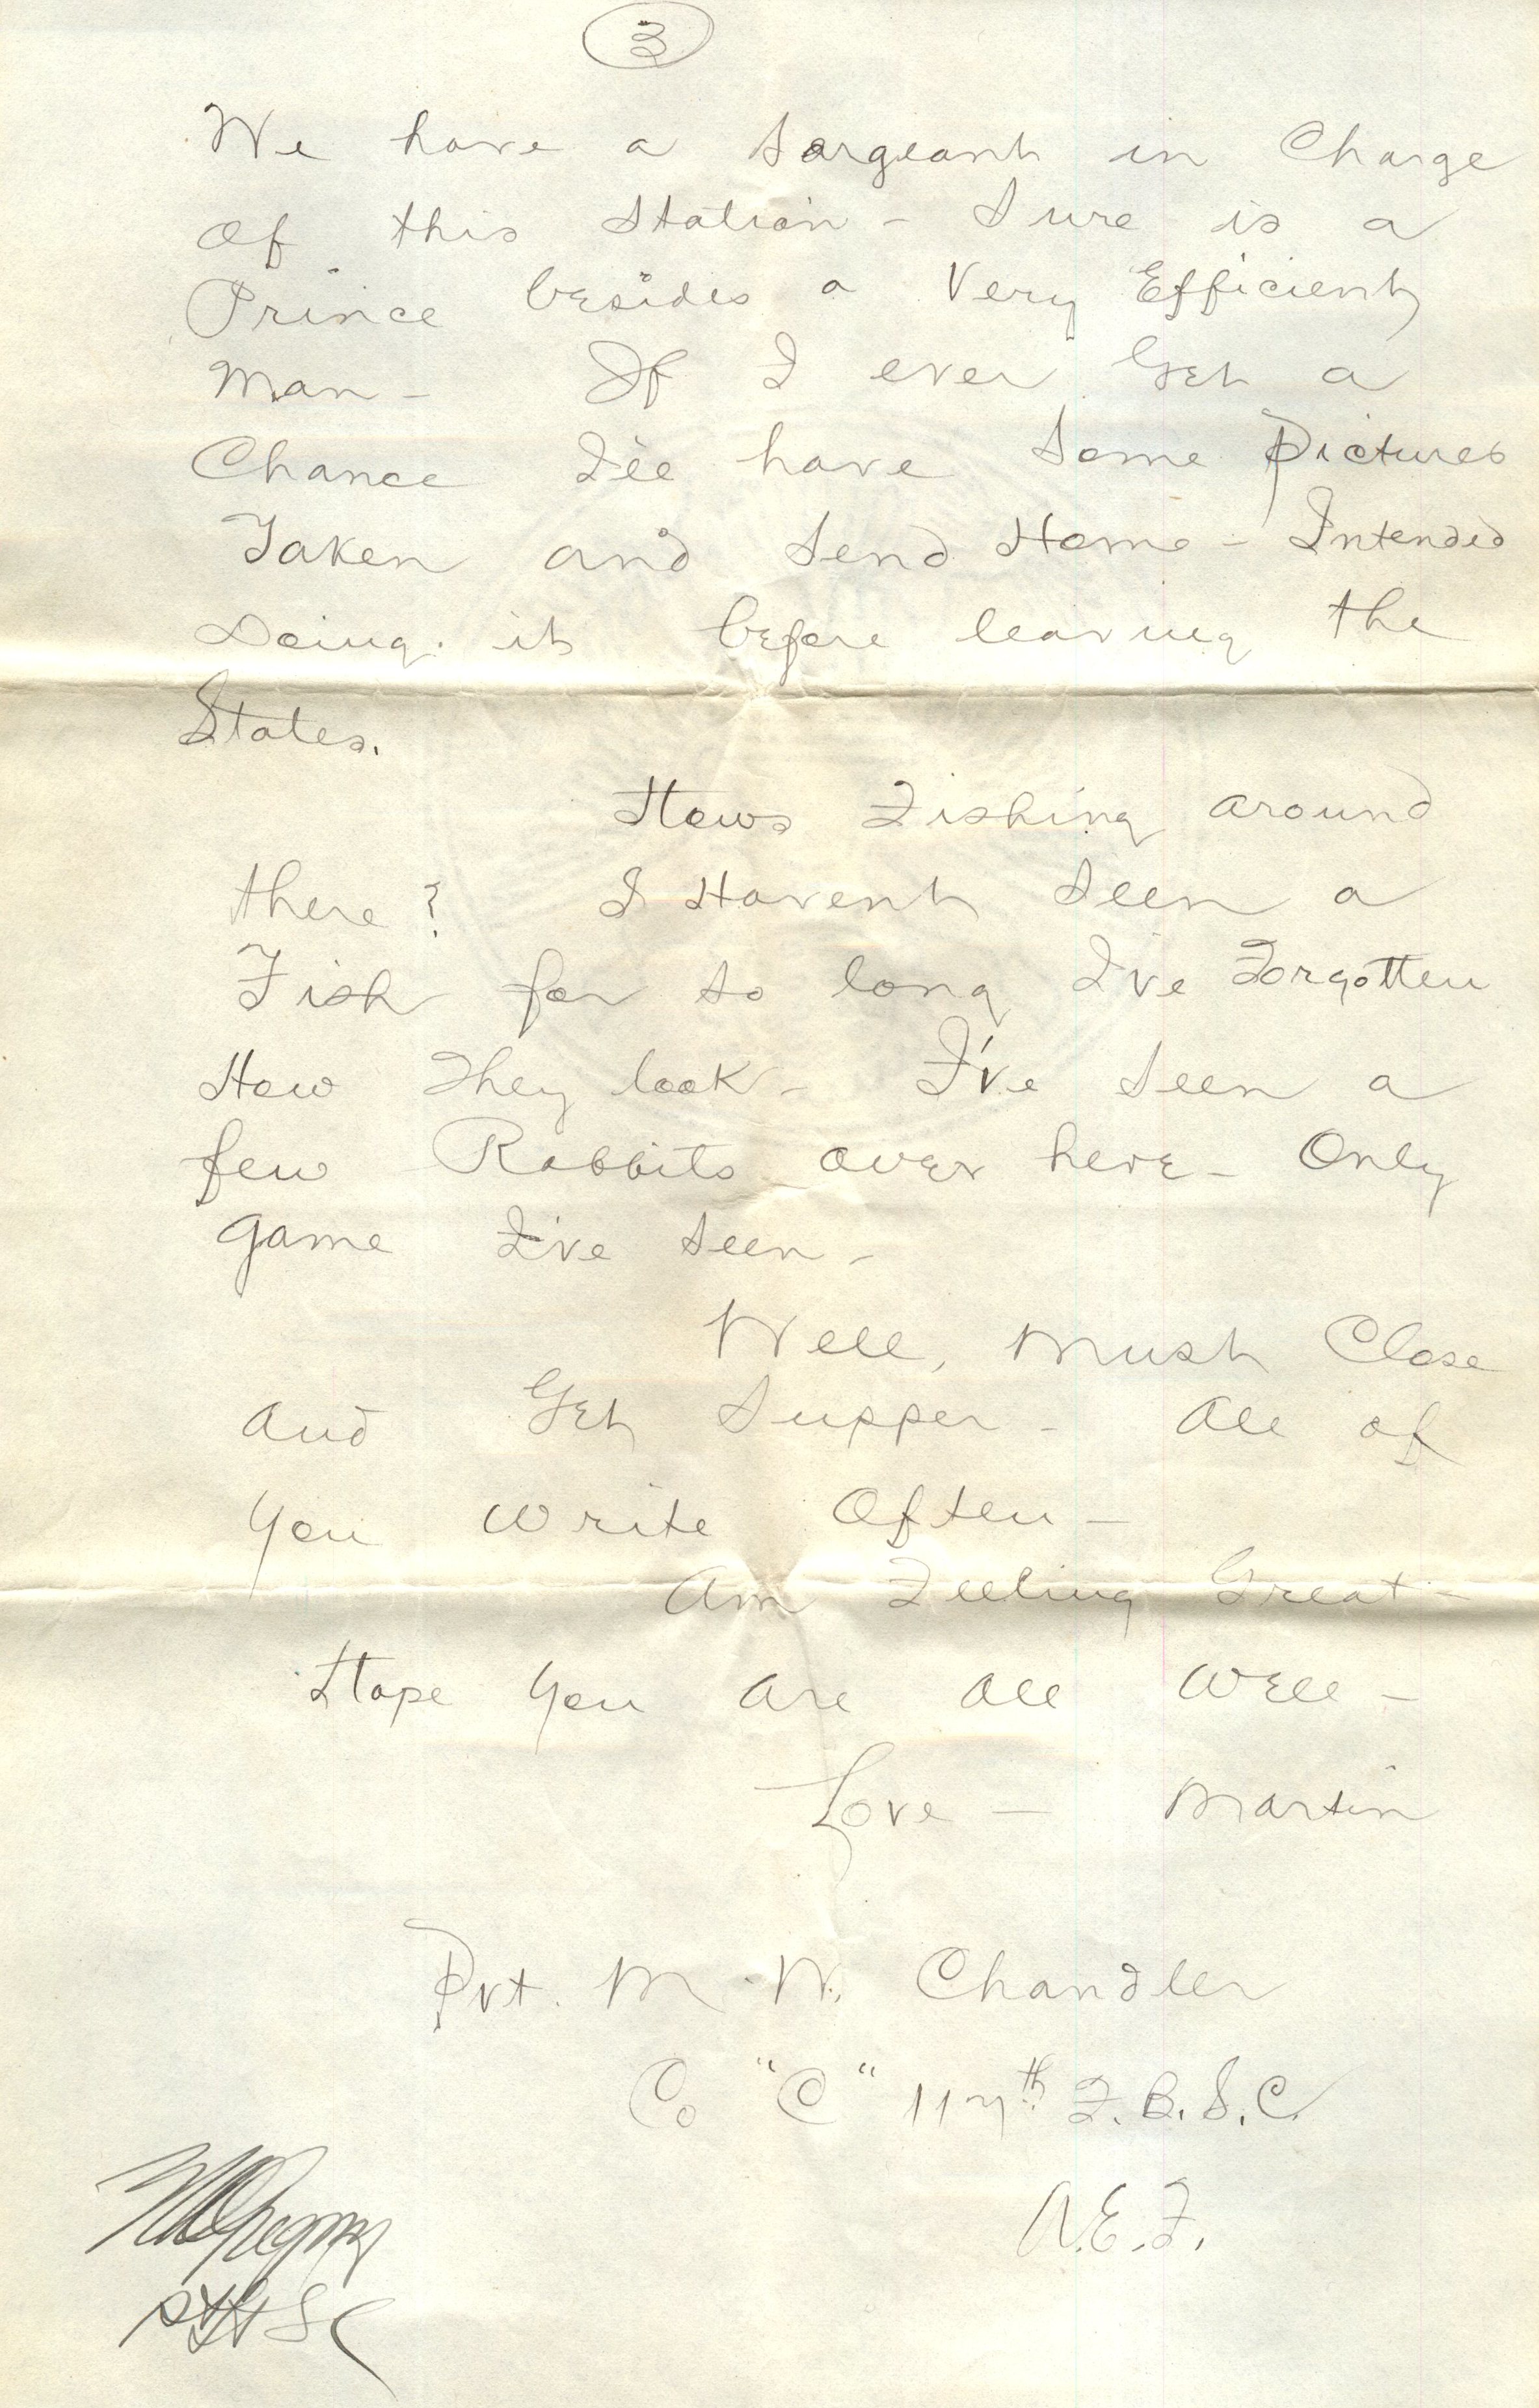 3
We have a Sargeant in Charge
of this Station - Sure is a
Prince besides a Very Efficient
Man - If I ever Get a
Chance I'll have Some Pictures
Taken and Send Home - Intended
Doing it before leaving the
States.
Hows Fishing around
there? I Havent Seen a
Fish for so long I've Forgotten
How They look - I've Seen a
few Rabbits over here - Only
game I've Seen -
Well, Must Close
and Get Supper - All of
you write Often -
Am Feeling Great -
Hope you are all well -
Love - Martin
Pvt. M. W. Chandler
Co "C" 117th F.B.S.C.
A.E.F.